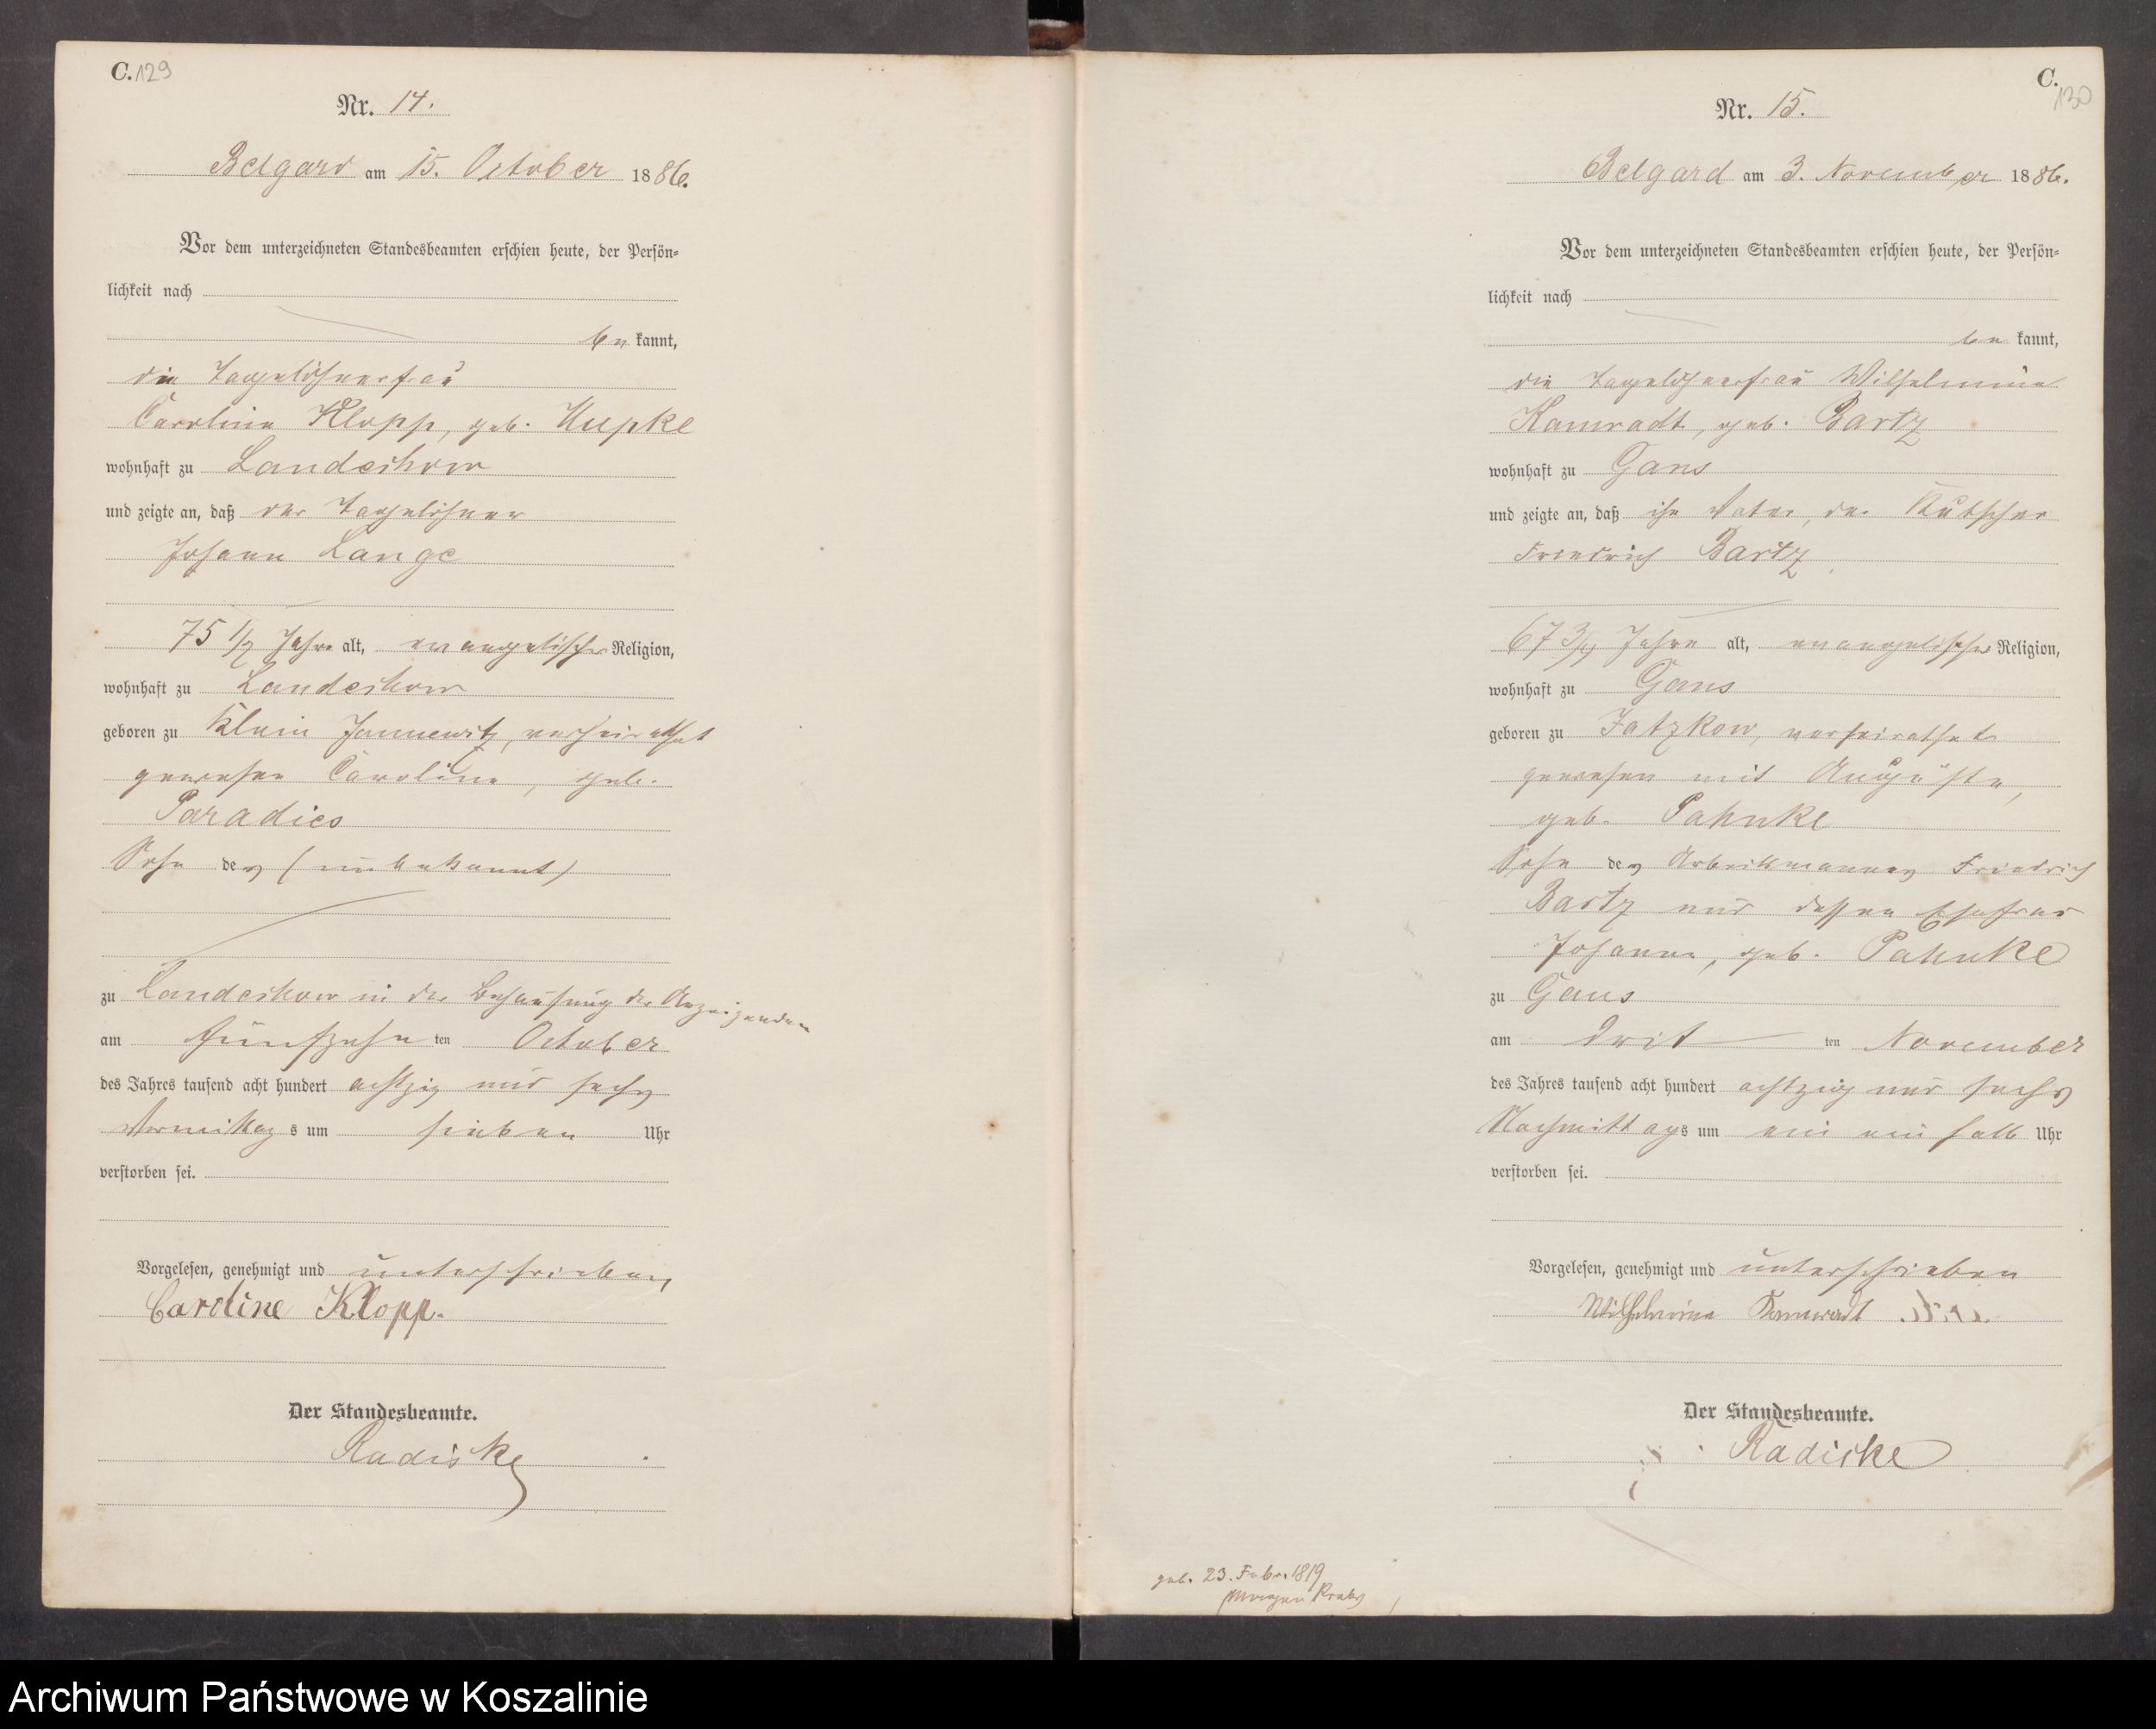 C. 129
Nr. 14.
Belgard am 15. October 1886.
Vor dem unterzeichneten Standesbeamten erschien heute, der Persön-
lichkeit nach
be kannt,
die Tagelöhnerfrau
Caroline Klopp, geb. Kupke
wohnhaft zu Landechow
und zeigte an, daß der Tagelöhner
Johann Lange
75 1/2 Jahre alt, evangelischer Religion,
wohnhaft zu Landechow
geboren zu Klein Jannewitz, verheirathet
gewesen Caroline, geb.
Paradies
Sohn des (unbekannt)
zu Landechow in der Behausung der Anzeigenden
am fünfzehn ten October
des Jahres tausend acht hundert achtzig und sechs
Vormittag s um sieben Uhr
verstorben sei.
Vorgelesen, genehmigt und unterschrieben
Caroline Klopp.
Der Standesbeamte.
Radiske
C.
130
Nr. 15.
Belgard am 3. November 1886.
Vor dem unterzeichneten Standesbeamten erschien heute, der Persön-
lichkeit nach
be kannt,
die Tagelöhnerfrau Wilhelmine
Kamradt, geb. Bartz
wohnhaft zu Gans
und zeigte an, daß ihr Vater, der Kutscher
Friedrich Bartz
67 3/4 Jahre alt, evangelischer Religion,
wohnhaft zu Gans
geboren zu Jatzkow, verheirathet
gewesen mit Auguste,
geb. Pahnke
Sohn des Arbeitsmannes Friedrich
Bartz und dessen Ehefrau
Johanne, geb. Pahnke
zu Gans
am drit ten November
des Jahres tausend acht hundert achtzig und sechs
Nachmittags um ein ein halb Uhr
verstorben sei.
Vorgelesen, genehmigt und unterschrieben
Wilhelmine Kamradt
Der Standesbeamte.
Radiske
geb. 23. Febr. 1819
Archiwum Państwowe w Koszalinie